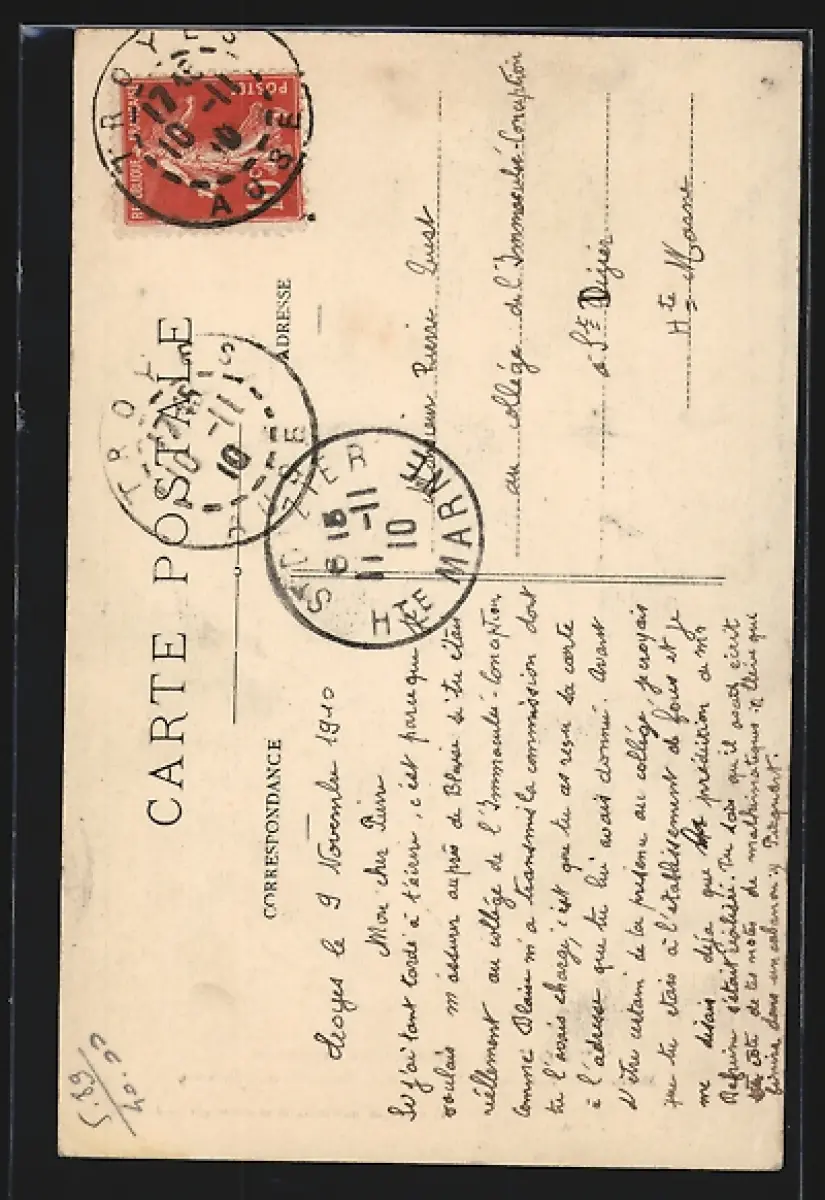 CARTE POSTALE
CORRESPONDANCE
ADRESSE
Troyes le 9 Novembre 1910
Mon cher Pierre
Si j'ai tant tardé à t'écrire, c'est parce que je
voulais m'assurer auprès de Blaise si tu étais
réellement au collège de l'Immaculée-Conception
comme Blaise m'a transmis la commission dont
tu l'avais chargé, c'est que tu as reçu la carte
à l'adresse que tu lui avais donnée. Avant
d'être certain de ta présence au collège, je croyais
que tu étais à l'établissement de fous et je
me disais déjà que la prédiction de Mr
s'était réalisée. Tu sais qu'il avait écrit
à côté de tes notes de mathématiques "élève qui
finira dans un cabanon"
Monsieur Pierre
au collège de l'Immaculée-Conception
à St Dizier
Hte Marne
REPUBLIQUE FRANÇAISE
POSTES
10 c
TROYES
17
10 -11
10
AUBE
TROYES
-11
10
AUBE
ST DIZIER
8 15
11 -11
10
HTE MARNE
5.89
40.00